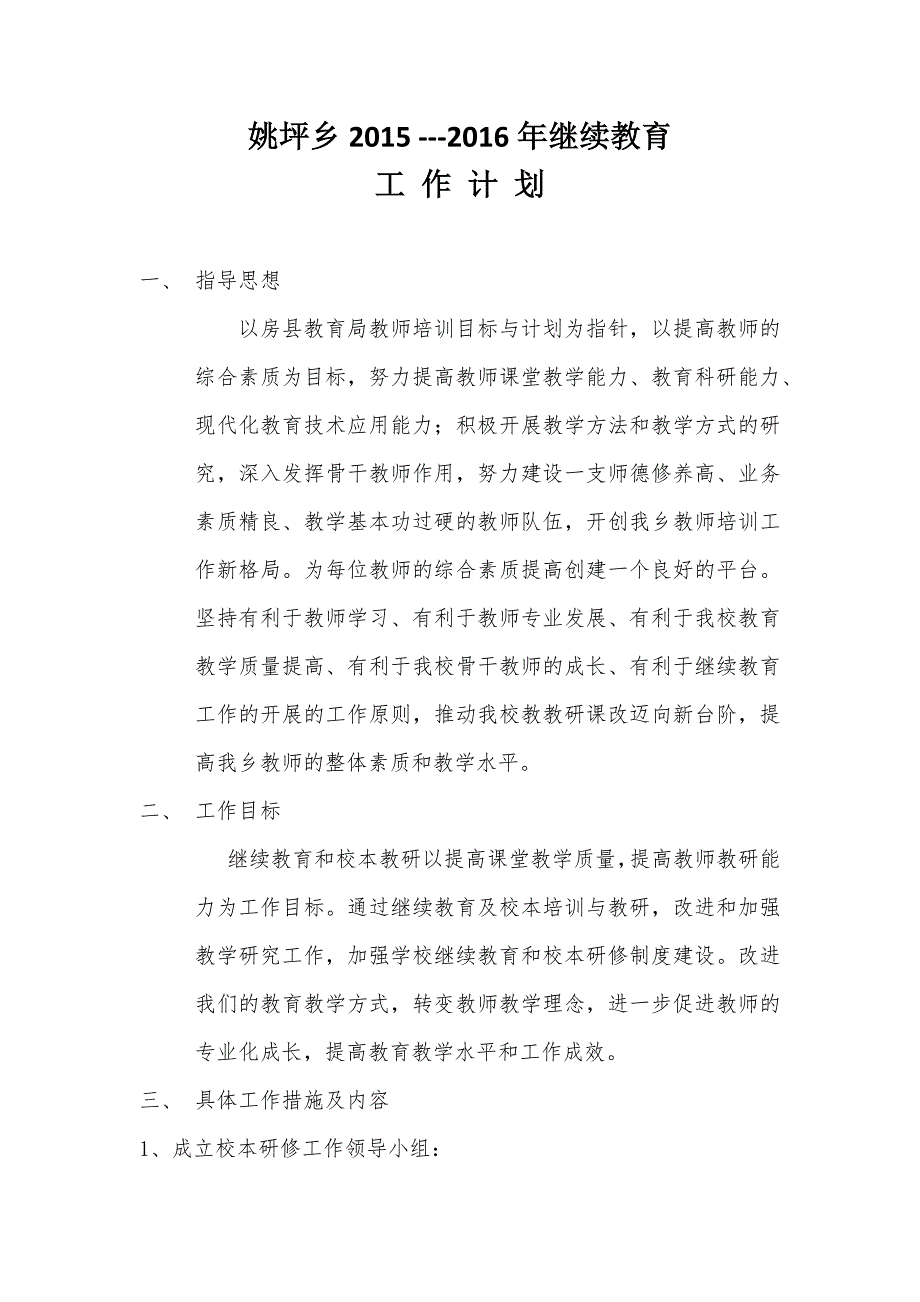 姚坪乡 2015 ---2016 年继续教育
工 作 计 划
一、 指导思想
以房县教育局教师培训目标与计划为指针，以提高教师的
综合素质为目标，努力提高教师课堂教学能力、教育科研能力、
现代化教育技术应用能力；积极开展教学方法和教学方式的研
究，深入发挥骨干教师作用，努力建设一支师德修养高、业务
素质精良、教学基本功过硬的教师队伍，开创我乡教师培训工
作新格局。为每位教师的综合素质提高创建一个良好的平台。
坚持有利于教师学习、有利于教师专业发展、有利于我校教育
教学质量提高、有利于我校骨干教师的成长、有利于继续教育
工作的开展的工作原则，推动我校教教研课改迈向新台阶，提
高我乡教师的整体素质和教学水平。
二、 工作目标
继续教育和校本教研以提高课堂教学质量，提高教师教研能
力为工作目标。通过继续教育及校本培训与教研，改进和加强
教学研究工作，加强学校继续教育和校本研修制度建设。改进
我们的教育教学方式，转变教师教学理念，进一步促进教师的
专业化成长，提高教育教学水平和工作成效。
三、 具体工作措施及内容
1、成立校本研修工作领导小组：